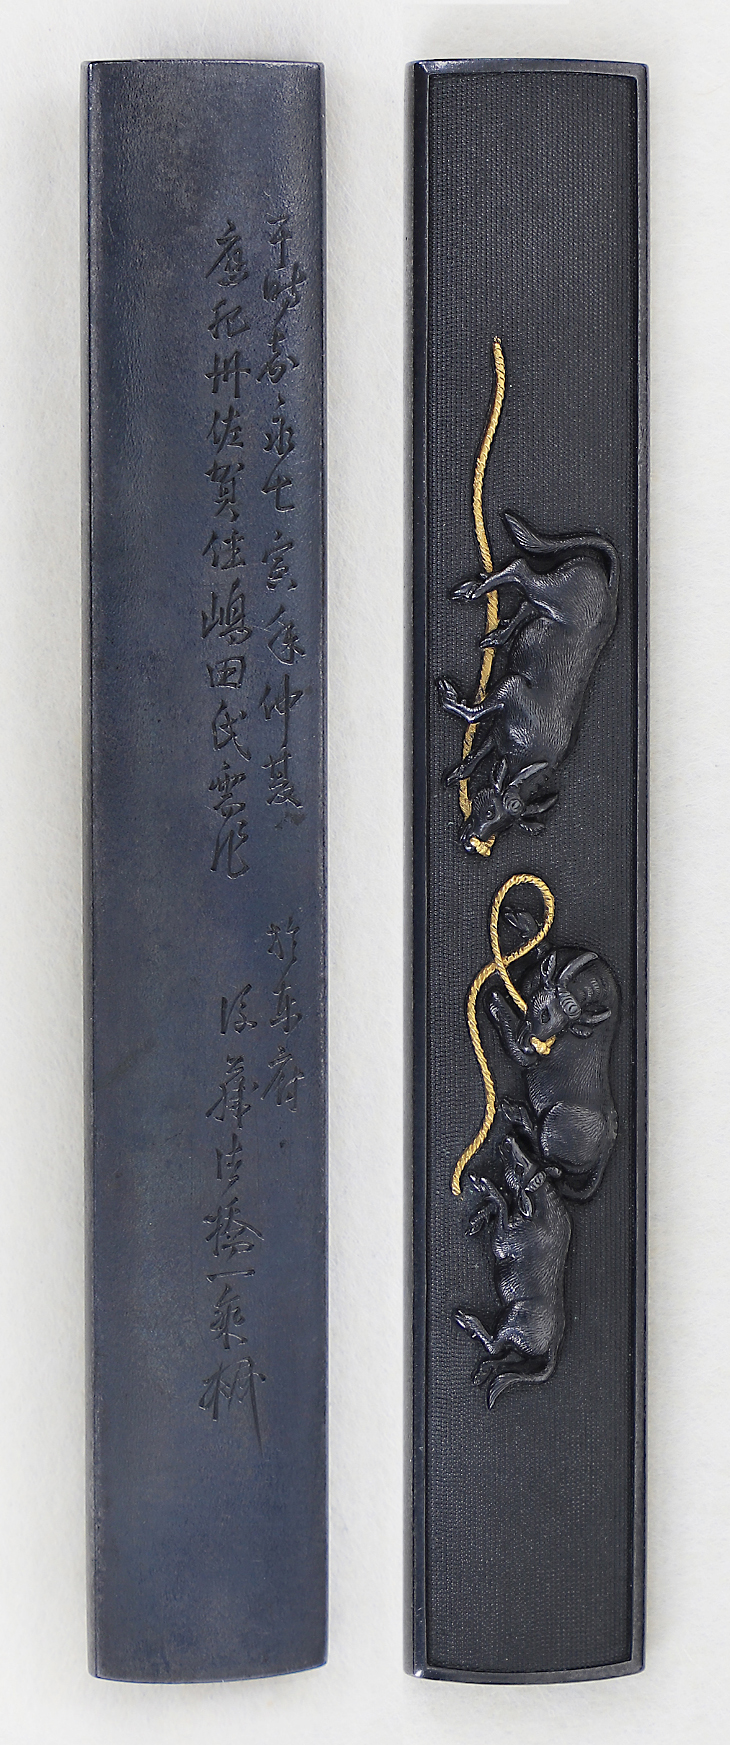 于時嘉永七寅年仲夏 於東府
應肥州佐賀住嶋田氏需作 後藤法橋一乘